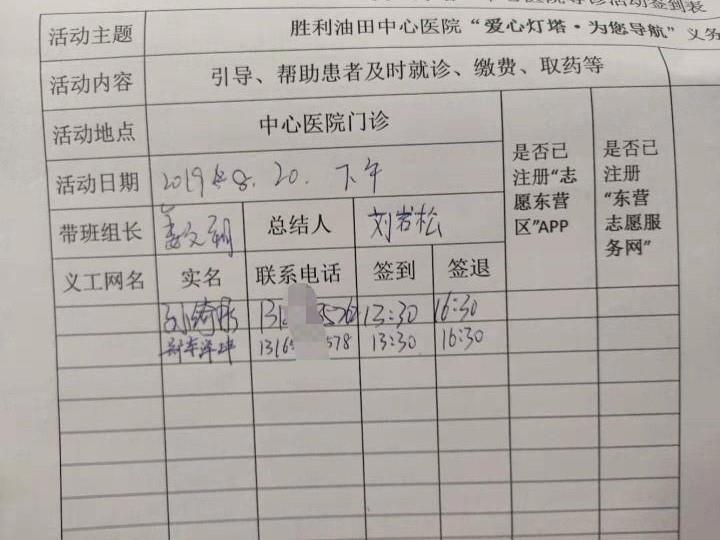 导诊活动签到表
活动主题 胜利油田中心医院“爱心灯塔·为您导航”义务
活动内容 引导、帮助患者及时就诊、缴费、取药等
活动地点 中心医院门诊
活动日期 2019年8.20.下午
是否已注册“志愿东营区”APP
是否已注册“东营志愿服务网”
带班组长 总结人 刘岩松
义工网名 实名 联系电话 签到 签退
13 576 13:30 16:30
1316 578 13:30 16:30